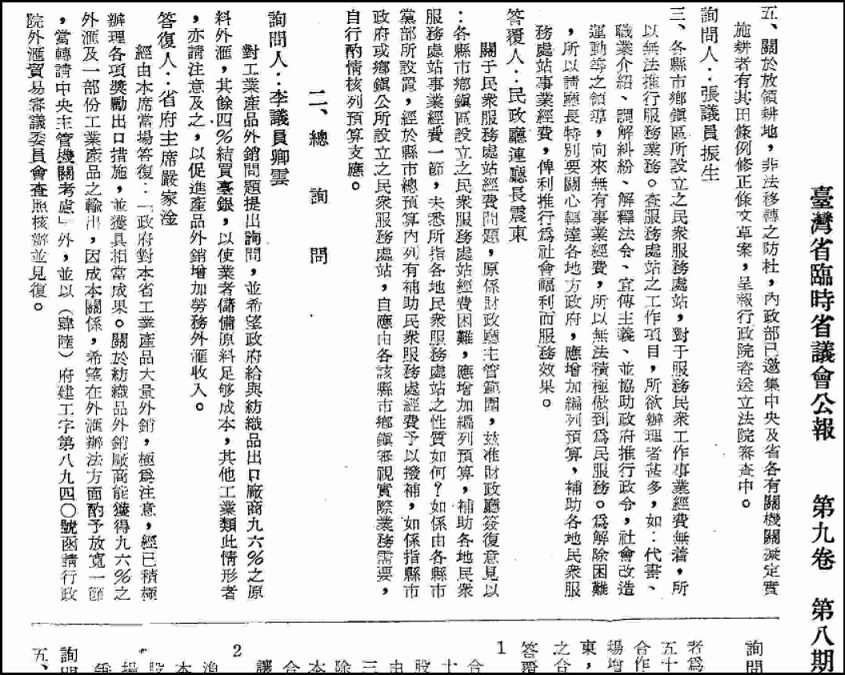 臺灣省臨時省議會公報　第九卷　第八期
五、關於放領耕地，非法移轉之防杜，內政部已邀集中央及省各有關機關擬定實
施耕者有其田條例修正條文草案，呈報行政院咨送立法院審查中。
詢問人：張議員振生
三、各縣市鄉鎮區所設立之民衆服務處站，對于服務民衆工作事業經費無着，所
以無法推行服務業務。查服務處站之工作項目，所欲辦理者甚多，如：代書、
職業介紹、調解糾紛、解釋法令、宣傳主義、並協助政府推行政令，社會改造
運動等之領導，向來無有事業經費，所以無法積極做到爲民服務。爲解除困難
，所以請廳長特別要關心轉達各地方政府，應增加編列預算，補助各地民衆服
務處站事業經費，俾利推行爲社會福利而服務效果。
答覆人：民政廳連廳長震東
關于民衆服務處站經費問題，原係財政廳主管範圍，茲准財政廳簽復意見以
：各縣市鄉鎮區設立之民衆服務處站經費困難，應增加編列預算，補助各地民衆
服務處站事業經費一節，未悉所指各地民衆服務處站之性質如何？如係由各縣市
黨部所設置，經於縣市總預算內列有補助民衆服務處站經費予以撥補，如係指縣市
政府或鄉鎮公所設立之民衆服務處站，自應由各該縣市鄉鎮審視實際業務需要，
自行酌情核列預算支應。
二、總詢問
詢問人：李議員卿雲
對工業產品外銷問題提出詢問，並希望政府給與紡織品出口廠商九六％之原
料外滙，其餘四％結買臺銀，以使業者儲備原料足够成本，其他工業類此情形者
，亦請注意及之，以促進產品外銷增加勞務外滙收入。
答復人：省府主席嚴家淦
經由本席當場答復：「政府對本省工業產品大量外銷，極爲注意，經已積極
辦理各項獎勵出口措施，並獲具相當成果。關於紡織品外銷廠商能獲得九六％之
外滙及一部份工業產品之輸出，因成本關係，希望在外滙辦法方面酌予放寬一節
，當轉請中央主管機關考慮」外，並以（肆陸）府建工字第八九四〇號函請行政
院外滙貿易審議委員會查照核辦並見復。
詢問
者爲
五十
合作
場增
東，
之合
答覆
1
合
十
股
由
三
除
本
合
讓
2
漁
本
股
場
詢問
五、